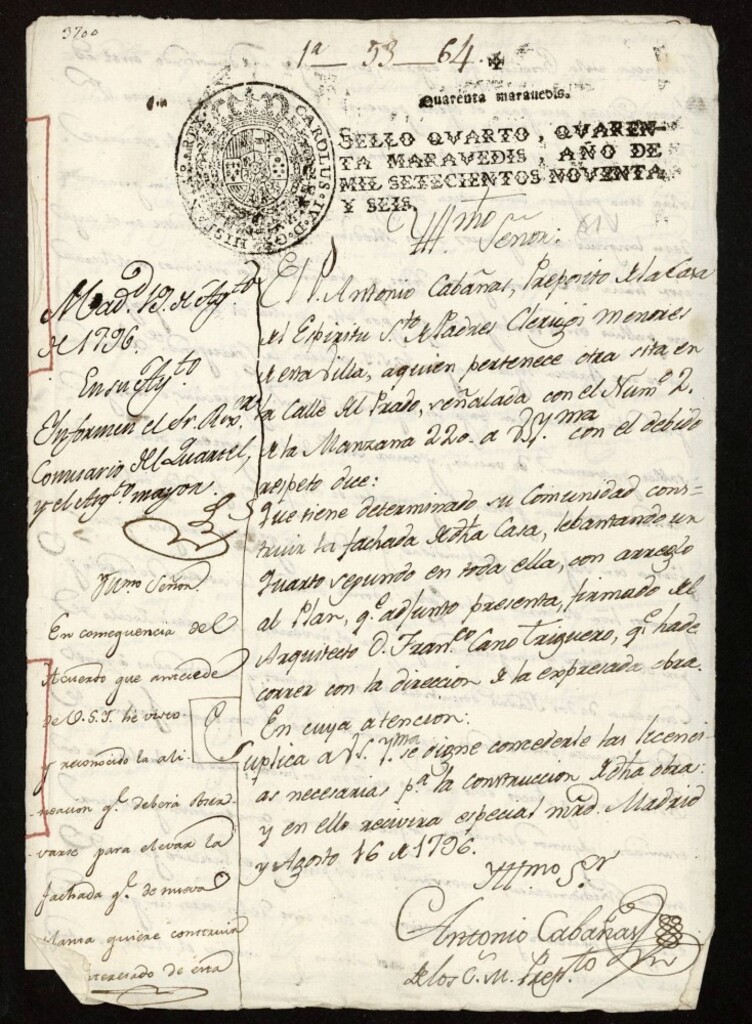 3700
1ª — 53 — 64.
Quarenta maravedis.
CAROLUS · IV · D · G · HISPAN · REX
SELLO QVARTO, QVAREN-
TA MARAVEDIS, AÑO DE
MIL SETECIENTOS NOVENTA
Y SEIS.
Yllmo
Señor:
El P. Antonio Cabañas, Preposito de la Casa
del Espiritu Sto de Padres Clerigos menores
de esta Villa, a quien pertenece otra sita en
la Calle del Prado, señalada con el Numº 2.
de la Manzana 220. a V.S.Yma con el debido
respeto dice:
Que tiene determinado su Comunidad cons=
truir la fachada de dha Casa, lebantando un
quarto segundo en toda ella, con arreglo
al Plan, qe adjunto presenta, firmado del
Arquitecto D. Franco Cano Triguero, qe ha de
correr con la direccion de la expresada obra.
En cuya atencion:
Suplica a V.S. Yma se digne concederle las licenci
as necesarias pa la construccion de dha obra:
y en ello recivira especial mrd. Madrid
y Agosto 16 de 1796.
Yllmo Sor
Antonio Cabañas
de los C. M. Prepto
Madd 19. de Agto
de 1796.
En su Ayto
Informen el Sr. Rexr
Comisario del Quartel,
y el Arqto mayor.
Yllmo Señor
En consequencia del
Acuerdo que antecede
de V.S.I. he visto
y reconocido la ali-
neacion qe debera obser-
varse para elevar la
fachada qe de nueva
planta quiere construir
interesado de esta